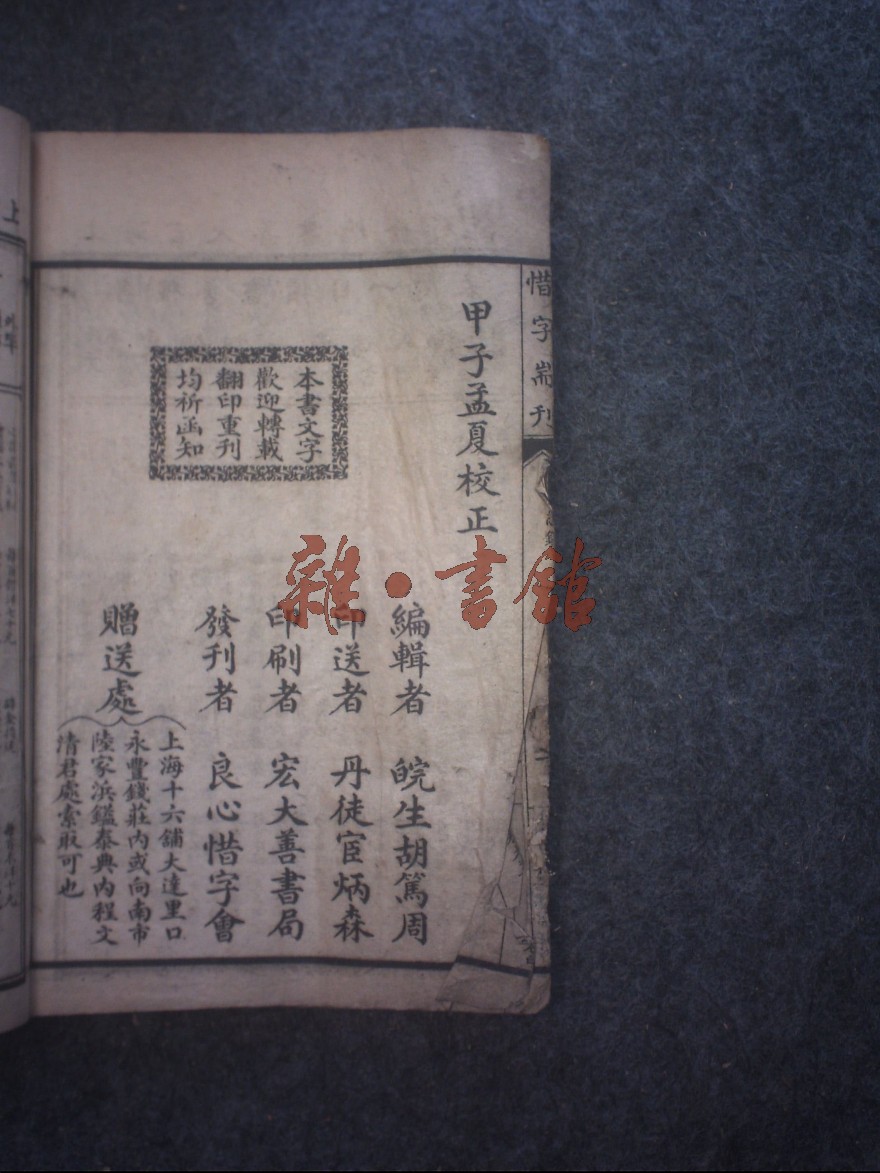 惜字耑刊
甲子孟夏校正
本書文字
歡迎轉載
翻印重刊
均祈函知
編輯者 皖生胡篤周
印送者 丹徒宦炳森
印刷者 宏大善書局
發刊者 良心惜字會
贈送處
上海十六舖大達里口
永豐錢莊內或向南市
陸家浜鑑泰典內程文
清君處索取可也
上
雜·書館